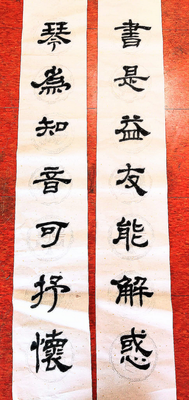 書是益友能解惑
琴為知音可抒懷